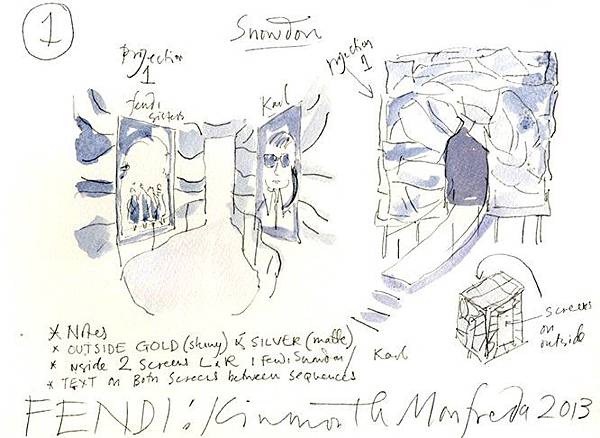 1
Snowdon
Projection
1
projection
1
Fendi
sisters
Karl
* Notes
* OUTSIDE GOLD (shiny) & SILVER (matte)
* Inside 2 Screens L & R 1 Fendi Snowdon/
Karl
* TEXT on Both Screens between sequences
screens
on
outside
FENDI:/Kinmonth Monfreda 2013